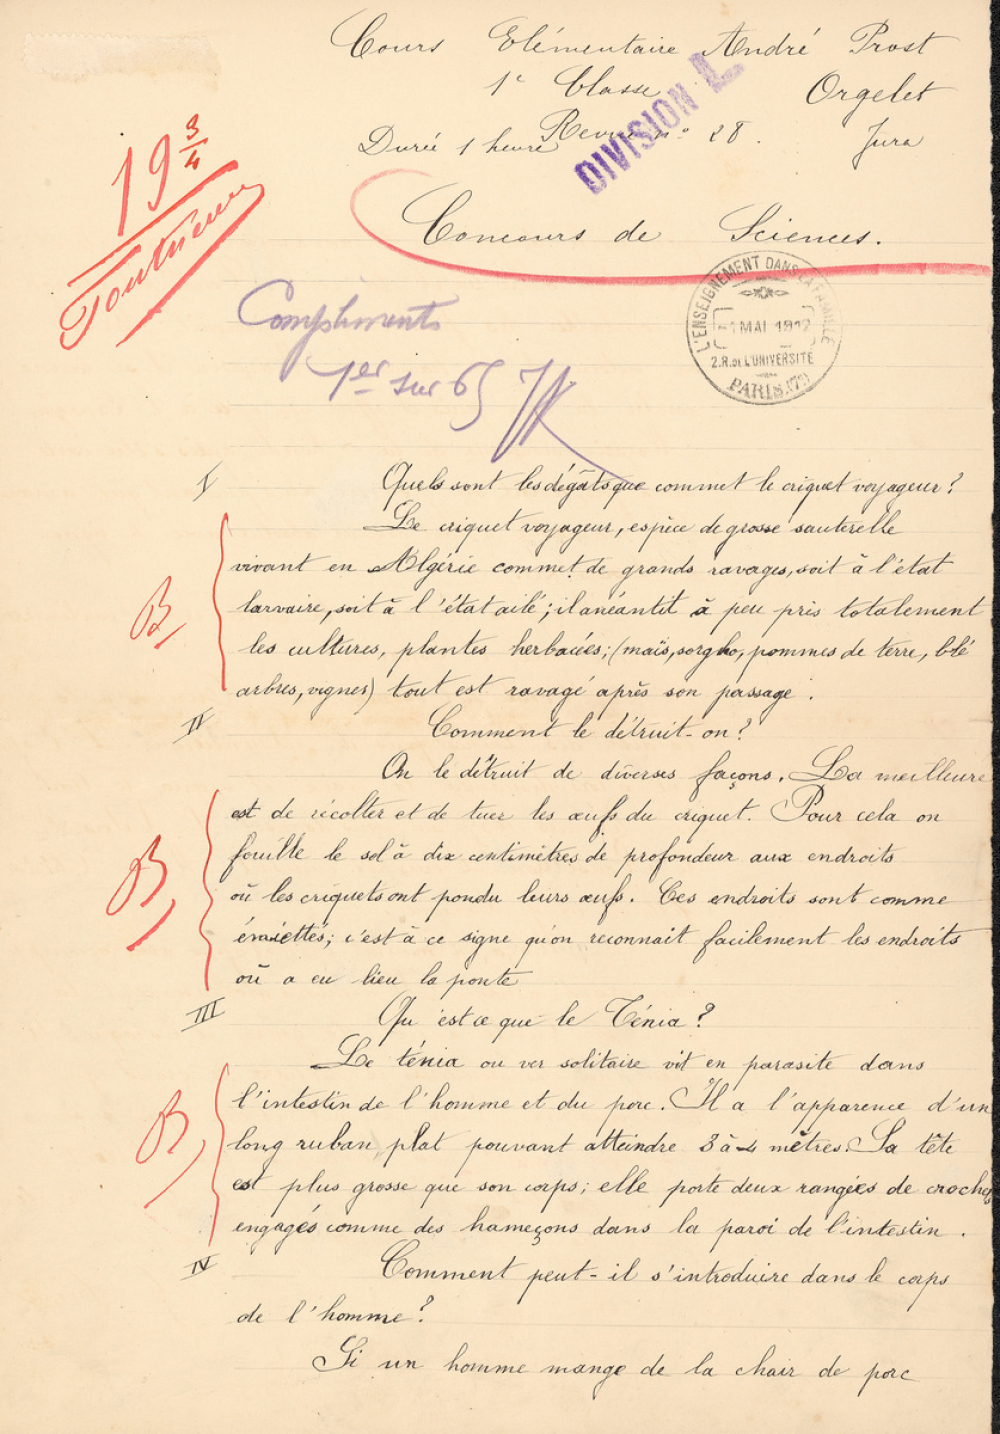 Cours Elémentaire André Prost
1e Classe Orgelet
Revue no 28. Jura
Durée 1 heure
DIVISION L
19 3/4
Concours de Sciences.
L'ENSEIGNEMENT DANS LA FAMILLE
1 MAI 1912
2.R.DE L'UNIVERSITÉ
PARIS (7e)
Compliments
1er sur 65
I Quels sont les dégâts que commet le criquet voyageur?
Le criquet voyageur, espèce de grosse sauterelle
vivant en Algérie commet de grands ravages, soit à l'état
larvaire, soit à l'état ailé; il anéantit à peu près totalement
B
les cultures, plantes herbacées; (maïs, sorgho, pommes de terre, blé
arbres, vignes) tout est ravagé après son passage.
II Comment le détruit-on?
On le détruit de diverses façons. La meilleure
est de récolter et de tuer les œufs du criquet. Pour cela on
fouille le sol à dix centimètres de profondeur aux endroits
B
où les criquets ont pondu leurs œufs. Ces endroits sont comme
émiettés; c'est à ce signe qu'on reconnait facilement les endroits
où a eu lieu la ponte
III Qu'est ce que le Ténia?
Le ténia ou ver solitaire vit en parasite dans
l'intestin de l'homme et du porc. Il a l'apparence d'un
B
long ruban plat pouvant atteindre 3 à 4 mètres. Sa tête
est plus grosse que son corps; elle porte deux rangées de crochets
engagés comme des hameçons dans la paroi de l'intestin.
IV Comment peut-il s'introduire dans le corps
de l'homme?
Si un homme mange de la chair de porc